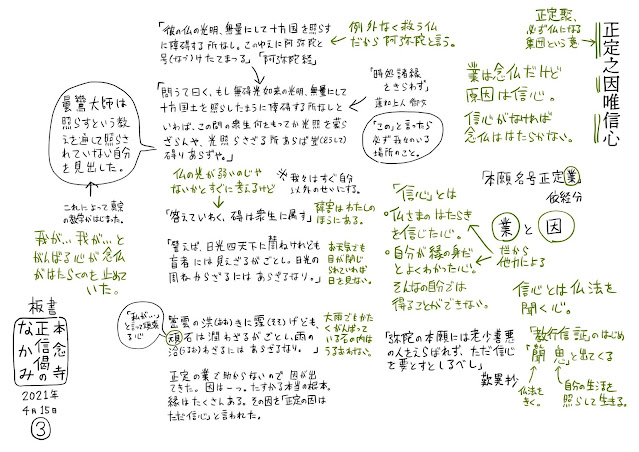 正定之因唯信心
正定聚、
必ず仏になる
集団という意
業は念仏だけど
原因は信心。
信心がなければ
念仏ははたらかない。
「本願名号正定業」
依経分
業と因
他から
他力による
信心とは仏法を
聞く心。
「教行信証」のはじめ
「聞思」と出てくる
仏法を
きく。
自分の生活を
照らして生きる。
「信心」とは
・仏さまのはたらき
を信じた心。
・自分が縁の身だ
とよくわかった心。
そんな自分では
得ることができない。
「弥陀の本願には老少善悪
の人をえらばれず、ただ信心
を要とすとしるべし」
歎異抄
「彼の仏の光明、無量にして十方国を照らす
に障碍する所なし。このゆえに阿弥陀と
号(なづ)けたてまつる」「阿弥陀経」
例外なく救う仏
だから阿弥陀と言う。
「問うて曰く、もし無碍光如来の光明、無量にして
十方国土を照らしたまうに障碍する所なしと
いわば、この間の衆生何をもってか光照を蒙ら
ざらんや、光照らさざる所あらば豈(どうして)
碍りあらずや。」
「時処諸縁
をきらわず」
蓮如上人 御文
「この」と言ったら
必ず我々のいる
場所のこと。
仏の光が弱いのじゃ
ないかとすぐに考えるけど
※我々はすぐ自分
以外のせいにする。
「答えていわく、碍は衆生に属す」
障害はわたしの
ほうにある。
「譬えば、日光四天下に周ねけれども
盲者には見えざるがごとし。日光の
周ねからざるにはあらざるなり。」
お天気でも
目が閉じ
られていれば
日を見ない。
「私が…」
と言って頑張
る心
密雲の洪(おお)きに霔(そそ)げども、
頑石は潤わざるがごとし。雨の
洽(うるお)わざるにはあらざるなり。」
大雨でもかた
くがんばって
いる石の内は
うるおわない。
正定の業で助からないので因が出
てきた。因は一つ。たすかる本当の根本。
縁はたくさんある。その因を「正定の因は
ただ信心」と言われた。
曇鸞大師は
照らすという教
えを通して照らさ
れていない自分
を見出した。
これによって真宗
の教学がはじまった。
我が…我が…と
がんばる心が念仏
がはたらくのも止めて
いた。
板書
本念寺
正信偈の
なかみ
2021年
4月15日
③